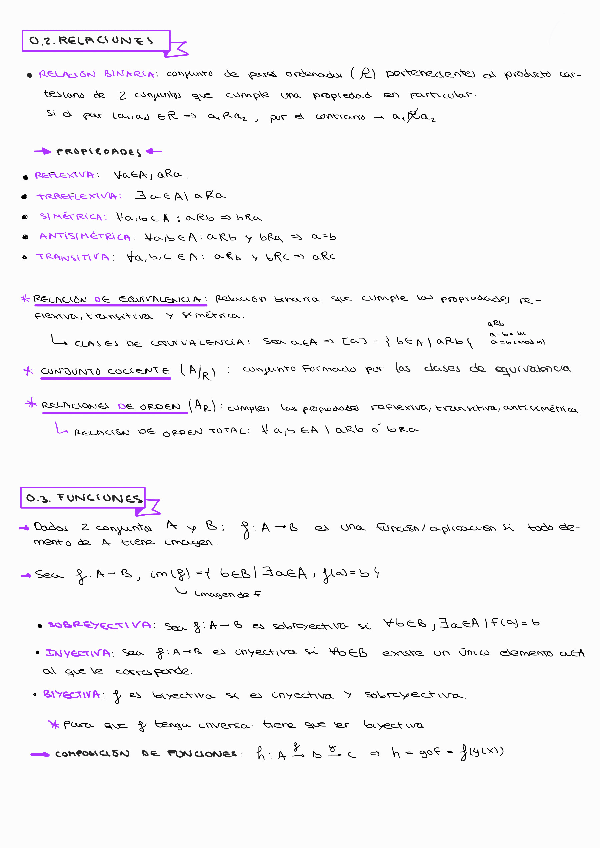 0.2. RELACIONES
• RELACIÓN BINARIA: conjunto de pares ordenados (R) pertenecientes al producto car-
tesiano de 2 conjuntos que cumple una propiedad en particular.
Si el par (a₁,a₂) ∈ R → a₁Ra₂, por el contrario → a₁R̸a₂
→ PROPIEDADES ←
• REFLEXIVA: ∀a∈A, aRa
• IRREFLEXIVA: ∃a∈A | aR̸a.
• SIMÉTRICA: ∀a,b∈A: aRb ⇒ bRa
• ANTISIMÉTRICA: ∀a,b∈A: aRb y bRa ⇒ a=b
• TRANSITIVA: ∀a,b,c∈A: aRb y bRc ⇒ aRc
* RELACIÓN DE EQUIVALENCIA: Relación binaria que cumple las propiedades re-
flexiva, transitiva y simétrica.
aRb
↳ CLASES DE EQUIVALENCIA: Sea a∈A ⇒ [a] = {b∈A | aRb}
* CONJUNTO COCIENTE (A/R): conjunto formado por las clases de equivalencia
* RELACIONES DE ORDEN (A,R): cumplen las propiedades reflexiva, transitiva, antisimétrica
↳ RELACIÓN DE ORDEN TOTAL: ∀a,b∈A | aRb ó bRa
0.3. FUNCIONES
→ Dados 2 conjuntos A y B; f: A→B es una función/aplicación si todo ele-
mento de A tiene imagen
→ Sea f: A→B, im(f) = {b∈B | ∃a∈A, f(a)=b}
↳ imagen de f
• SOBREYECTIVA: Sea f: A→B es sobreyectiva si ∀b∈B, ∃a∈A | f(a)=b
• INYECTIVA: Sea f: A→B es inyectiva si ∀b∈B existe un único elemento a∈A
al que le corresponde.
• BIYECTIVA: f es biyectiva si es inyectiva y sobreyectiva.
* Para que f tenga inversa tiene que ser biyectiva
→ COMPOSICIÓN DE FUNCIONES: h: A →f B →g C ⇒ h = gof = f(g(x))